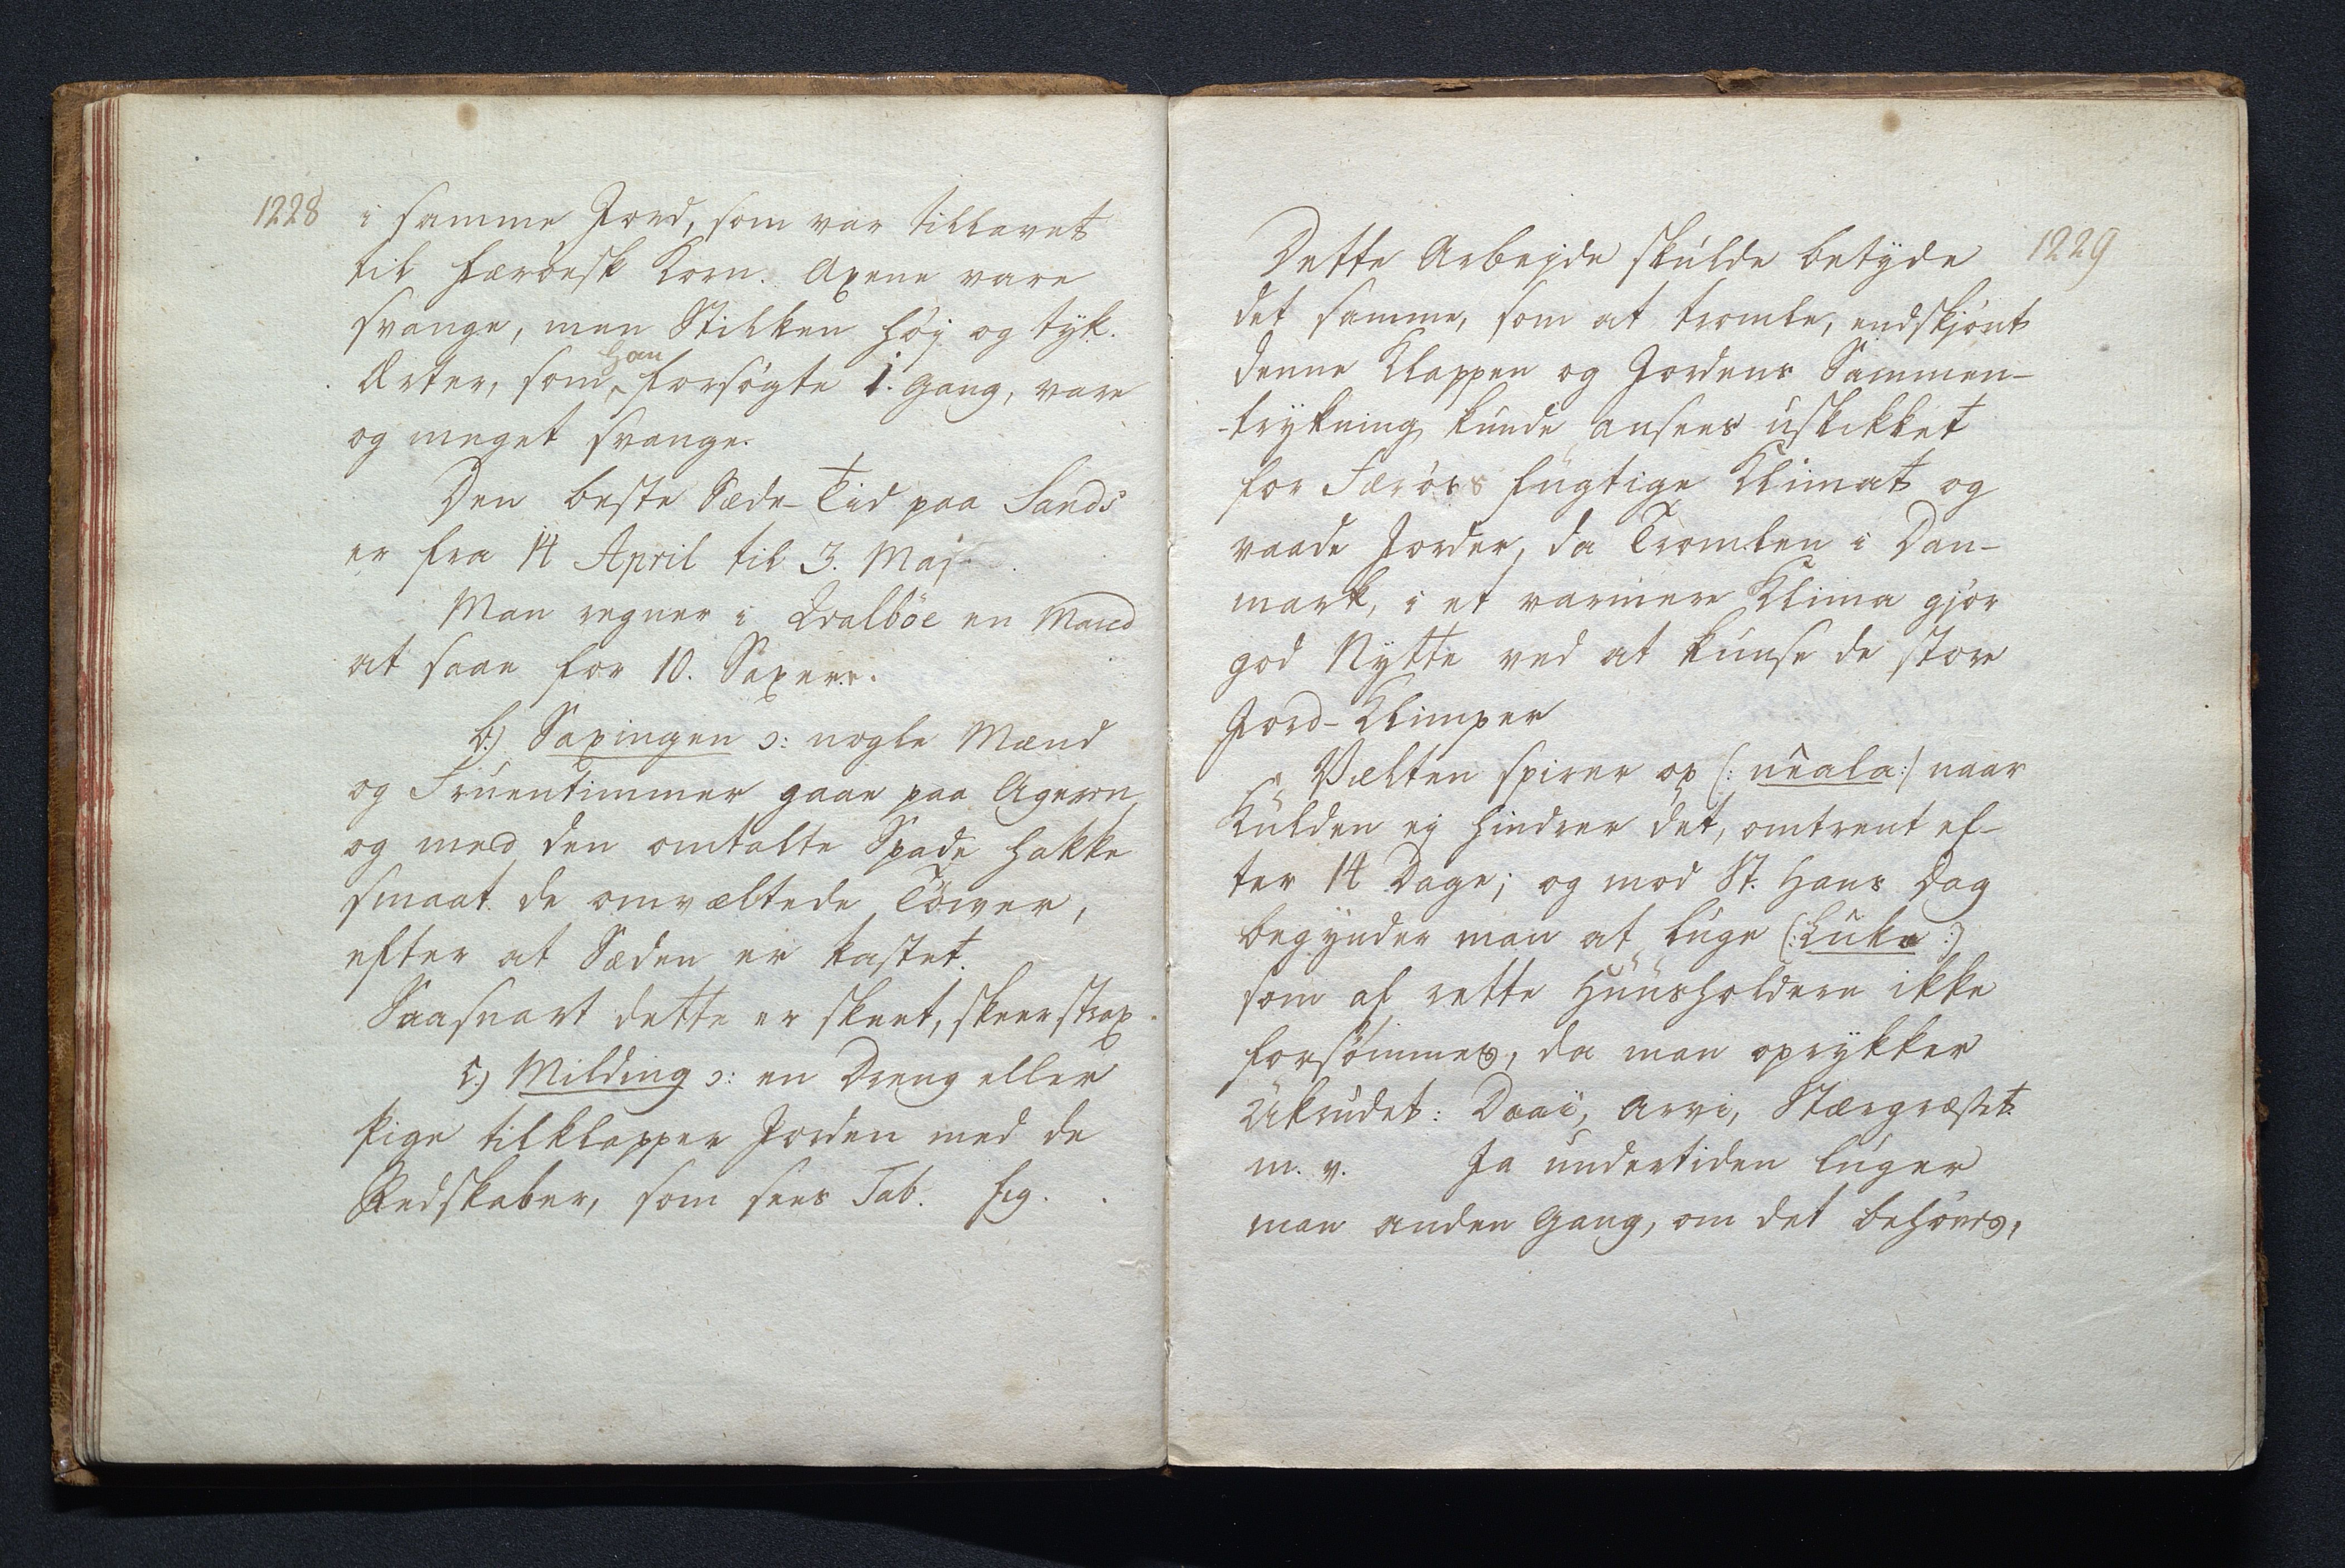 1228
i samme Jord, som var tillavet
til Færöesk Korn. Axene vare
svange, men Stilken höj og tyk.
Ærter, som han forsögte 1. Gang, vare
og meget svange.
Den beste Sæde-Tid paa Sands
er fra 14 April til 3. Maj.
Man regner i Qvalböe en Mand
at saae for 10. Saxere.
b.) Saxingen ɔ: nogle Mænd
og Fruentimmer gaae paa Ageren,
og med den omtalte Spade hakke
smaat de omvæltede Törver,
efter at Sæden er kastet.
Saasnart dette er skeet, skeer strax
c.) Milding ɔ: en Dreng eller
Pige tilklapper Jorden med de
Redskaber, som sees Tab. fig. .
1229
Dette Arbejde skulde betyde
det samme, som at tromle, endskjönt
denne Klappen og Jordens Sammen-
-trykning kunde ansees uskikket
for Færöes fugtige Klimat og
vaade Jorder, da Tromlen i Dan-
mark, i et varmere Klima gjör
god Nytte ved at knuse de store
Jord-Klimper
Vælten spirer op (: neala :) naar
Kulden ej hindrer det, omtrent ef-
ter 14 Dage; og mod St. Hans Dag
begynder man at luge (: Luka :)
som af rette Huusholdere ikke
forsömmes, da man oprykker
Ukrudet: Daai, Arvi, Stærgræset
m. v. Ja undertiden luger
man anden Gang, om det behöves,